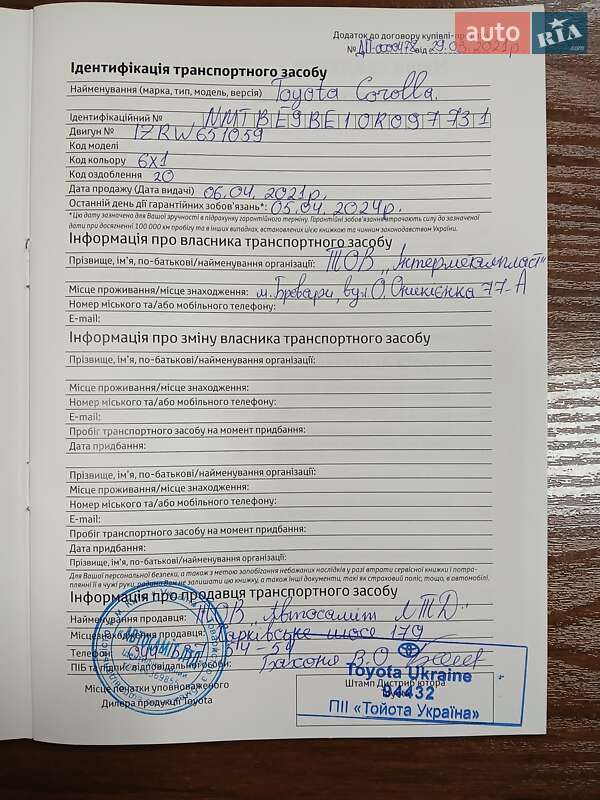 Додаток до договору купівлі-
№ ДП-0000478 від 29.03.2021р
auto RIA.com
Ідентифікація транспортного засобу
Найменування (марка, тип, модель, версія) Toyota Corolla.
Ідентифікаційний № NMTBE9BE10R097731
Двигун № 1ZRW651059
Код моделі
Код кольору 6X1
Код оздоблення 20
Дата продажу (Дата видачі) 06.04.2021р.
Останній день дії гарантійних зобов'язань*: 05.04.2024р.
*Цю дату зазначено для Вашої зручності в підрахунку гарантійного терміну. Гарантійні зобов'язання втрачають силу до зазначеної
дати при досягненні 100 000 км пробігу та в інших випадках, встановлених цією книжкою та чинним законодавством України.
Інформація про власника транспортного засобу
Прізвище, ім'я, по-батькові/найменування організації: ТОВ „Інтермекампласт"
Місце проживання/місце знаходження: м. Бровари, вул О. Оникієнка 77-А
Номер міського та/або мобільного телефону:
E-mail:
Інформація про зміну власника транспортного засобу
Прізвище, ім'я, по-батькові/найменування організації:
Місце проживання/місце знаходження:
Номер міського та/або мобільного телефону:
E-mail:
Пробіг транспортного засобу на момент придбання:
Дата придбання:
Прізвище, ім'я, по-батькові/найменування організації:
Місце проживання/місце знаходження:
Номер міського та/або мобільного телефону:
E-mail:
Пробіг транспортного засобу на момент придбання:
Дата придбання:
Прізвище, ім'я, по-батькові/найменування організації:
Для Вашої персональної безпеки, а також з метою запобігання небажаних наслідків у разі втрати сервісної книжки і потра-
пляння її в чужі руки, радимо Вам не залишати цю книжку, а також інші документи, такі як страховий поліс, тощо, в автомобілі.
Інформація про продавця транспортного засобу
Найменування продавця: ТОВ „Автосаміт ЛТД"
Місцезнаходження продавця: Харківське шосе 179
Телефон
ПІБ та підпис відповідальної особи: В.О.
Місце печатки уповноваженого
Дилера продукції Toyota
Штамп Дистриб'ютора
Toyota Ukraine
94432
ПІІ «Тойота Україна»